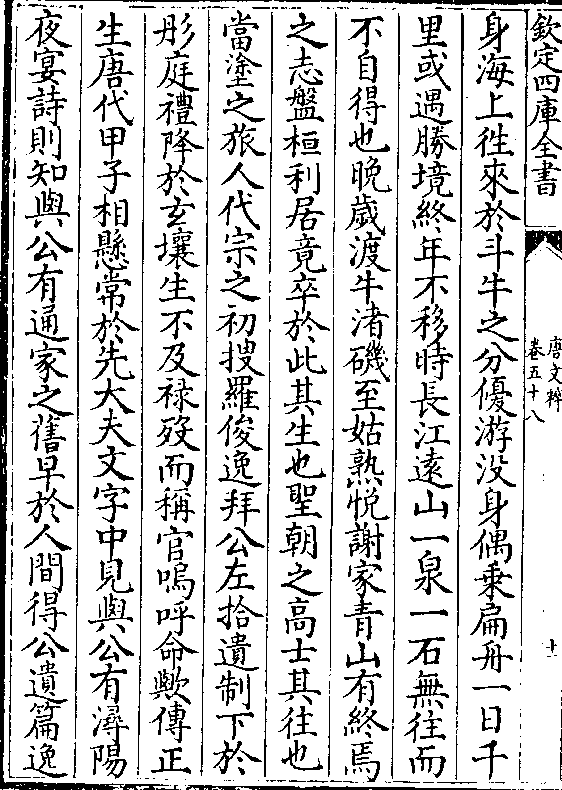 欽定四庫全書
唐文粹
卷五十八
十一
身海上徃來於斗牛之分優游没身偶乗扁舟一日千
里或遇勝境終年不移時長江遠山一泉一石無往而
不自得也晚歲渡牛渚磯至姑熟悦謝家青山有終焉
之志盤桓利居竟卒於此其生也聖朝之高士其往也
當塗之旅人代宗之初搜羅俊逸拜公左拾遺制下於
彤庭禮降於玄壤生不及禄殁而稱官嗚呼命歟傳正
生唐代甲子相懸常於先大夫文字中見與公有潯陽
夜宴詩則知與公有通家之舊早於人間得公遺篇逸